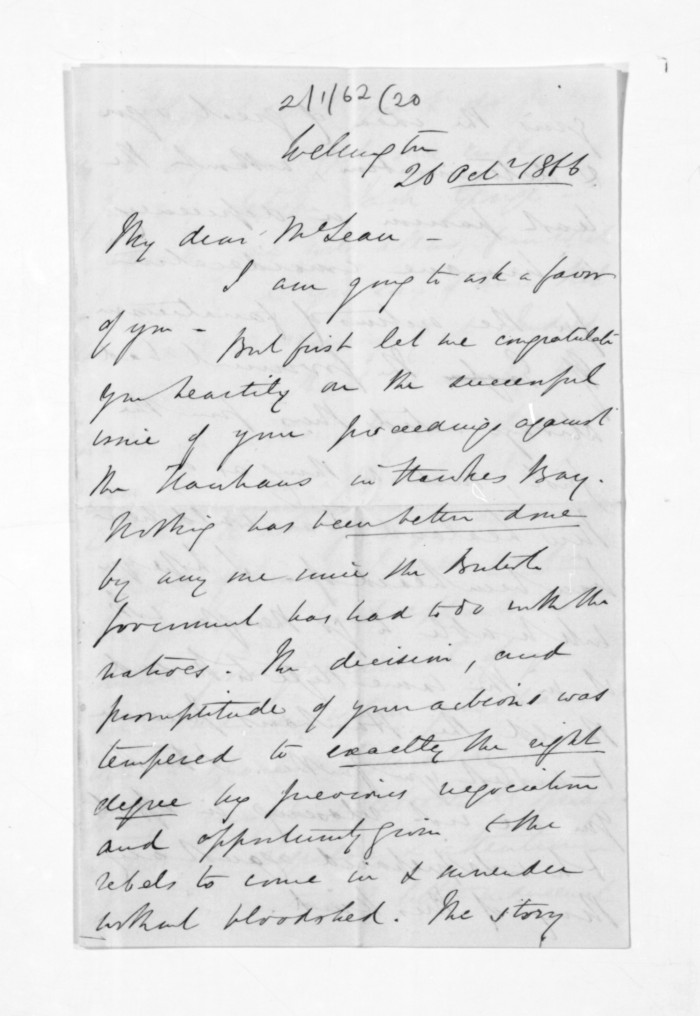 2/1/62/20
Wellington
26 Octr 1866.
My dear McLean –
I am going to ask a favor
of you – But first let me congratulate
you heartily on the successful
issue of your proceedings against
the Hauhaus in Hawkes Bay.
Nothing has been better done
by any one since the British
Government has had to do with the
natives. The decision, and
promptitude of your actions was
tempered to exactly the right
degree by previous negociation
and opportunity given to the
rebels to come in & surrender
without bloodshed. The story